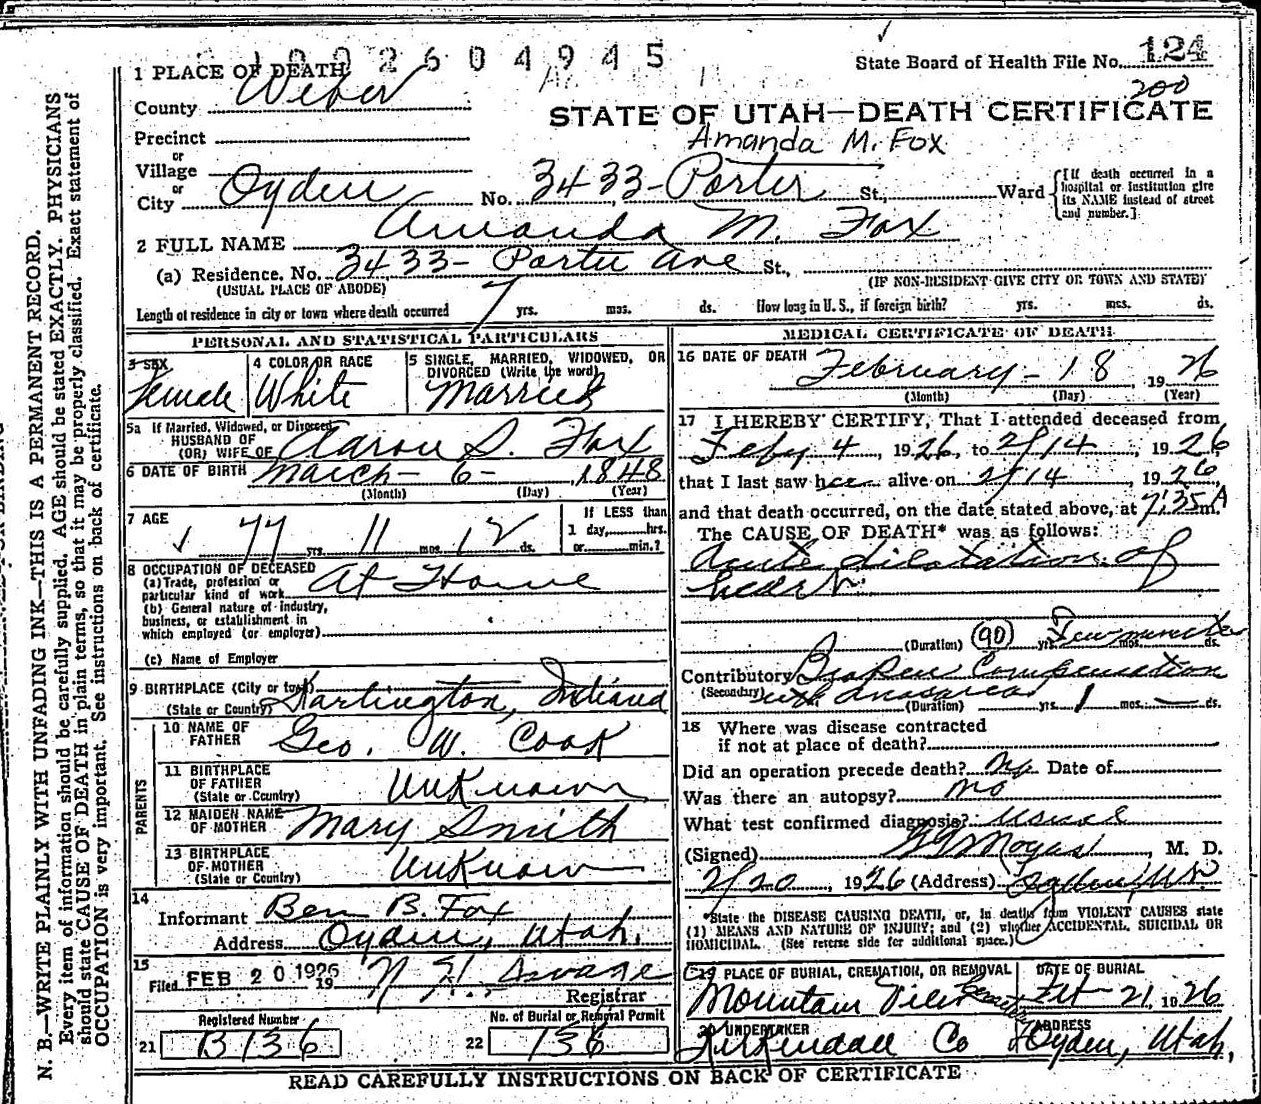 1002604945
State Board of Health File No. 124
200
1 PLACE OF DEATH
County Weber
STATE OF UTAH—DEATH CERTIFICATE
Precinct
Amanda M. Fox
or
Village
or
City Ogden No. 3433 - Porter St., Ward {[If death occurred in a hospital or institution give its NAME instead of street and number.]
2 FULL NAME Amanda M. Fox
(a) Residence. No. 3433 - Porter Ave St.,
(USUAL PLACE OF ABODE) (IF NON-RESIDENT GIVE CITY OR TOWN AND STATE)
Length of residence in city or town where death occurred 7 yrs. mos. ds. How long in U. S., if foreign birth? yrs. mos. ds.
PERSONAL AND STATISTICAL PARTICULARS
3 SEX Female
4 COLOR OR RACE White
5 SINGLE, MARRIED, WIDOWED, OR DIVORCED (Write the word) Married
5a If Married, Widowed, or Divorced
HUSBAND OF
(OR) WIFE OF Aaron S. Fox
6 DATE OF BIRTH March - 6 - 1848
(Month) (Day) (Year)
7 AGE 77 yrs. 11 mos. 12 ds.
If LESS than
1 day, hrs.
or min.?
8 OCCUPATION OF DECEASED
(a) Trade, profession or
particular kind of work At Home
(b) General nature of industry,
business, or establishment in
which employed (or employer)
(c) Name of Employer
9 BIRTHPLACE (City or town)
(State or Country) Darlington, Indiana
PARENTS
10 NAME OF
FATHER Geo. W. Cook
11 BIRTHPLACE
OF FATHER
(State or Country) Unknown
12 MAIDEN NAME
OF MOTHER Mary Smith
13 BIRTHPLACE
OF MOTHER
(State or Country) Unknown
14
Informant Ben B. Fox
Address Ogden, Utah.
15
Filed FEB 20 1926 19
Registrar
Registered Number
21 B136
No. of Burial or Removal Permit
22 136
MEDICAL CERTIFICATE OF DEATH
16 DATE OF DEATH February - 18, 1926
(Month) (Day) (Year)
17 I HEREBY CERTIFY, That I attended deceased from
Feby 4 1926, to 2/14, 1926
that I last saw her alive on 2/14 1926,
and that death occurred, on the date stated above, at 7:35 A m.
The CAUSE OF DEATH* was as follows:
Acute dilatation of
heart
(Duration) (90) yrs. Few minutes mos. ds.
Contributory Broken Compensation
(Secondary) with anasarca
(Duration) yrs. 1 mos. — ds.
18 Where was disease contracted
if not at place of death?
Did an operation precede death? No Date of
Was there an autopsy? No
What test confirmed diagnosis? Usual
(Signed) M. D.
2/20, 1926 (Address) Ogden, Ut
*State the DISEASE CAUSING DEATH, or, in deaths from VIOLENT CAUSES state
(1) MEANS AND NATURE OF INJURY; and (2) whether ACCIDENTAL, SUICIDAL OR
HOMICIDAL. (See reverse side for additional space.)
19 PLACE OF BURIAL, CREMATION, OR REMOVAL Mountain View Cemetery
DATE OF BURIAL Feb 21, 1926
20 UNDERTAKER Kirkendall Co
ADDRESS Ogden, Utah,
READ CAREFULLY INSTRUCTIONS ON BACK OF CERTIFICATE
N. B.—WRITE PLAINLY WITH UNFADING INK—THIS IS A PERMANENT RECORD.
Every item of information should be carefully supplied. AGE should be stated EXACTLY. PHYSICIANS
should state CAUSE OF DEATH in plain terms, so that it may be properly classified. Exact statement of
OCCUPATION is very important. See instructions on back of certificate.